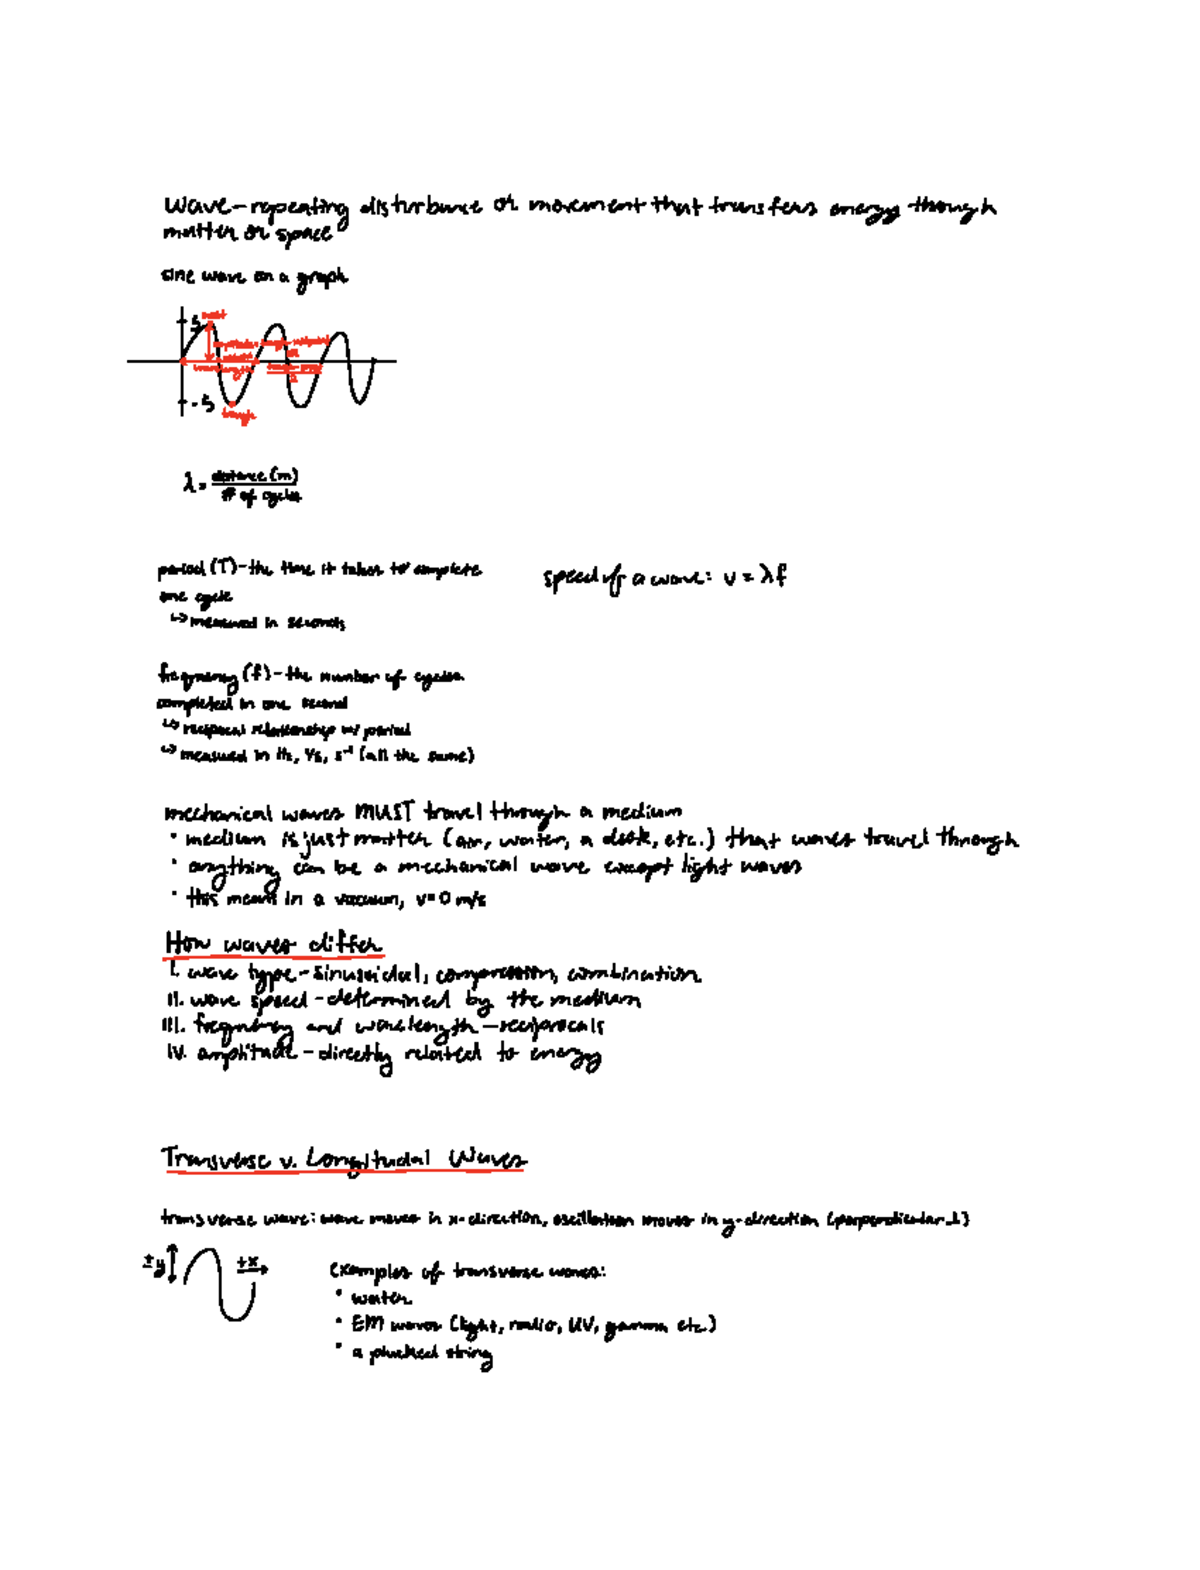 wave - repeating disturbance or movement that transfers energy through
matter or space
sine wave on a graph
5
crest
amplitude
wavelength
-5
trough
λ = distance (m)
# of cycles
period (T) - the time it takes to complete
one cycle
↳ measured in seconds
speed of a wave: v = λf
frequency (f) - the number of cycles
completed in one second
↳ reciprocal relationship w/ period
↳ measured in Hz, 1/s, s⁻¹ (all the same)
mechanical waves MUST travel through a medium
• medium is just matter (air, water, a desk, etc.) that waves travel through
• anything can be a mechanical wave except light waves
• this means in a vacuum, v=0 m/s
How waves differ
I. wave type - sinusoidal, compression, combination
II. wave speed - determined by the medium
III. frequency and wavelength - reciprocals
IV. amplitude - directly related to energy
Transverse v. Longitudal Waves
transverse wave: wave moves in x-direction, oscillation moves in y-direction (perpendicular ⊥)
±y
±x
examples of transverse waves:
• water
• EM waves (light, radio, UV, gamma etc.)
• a plucked string